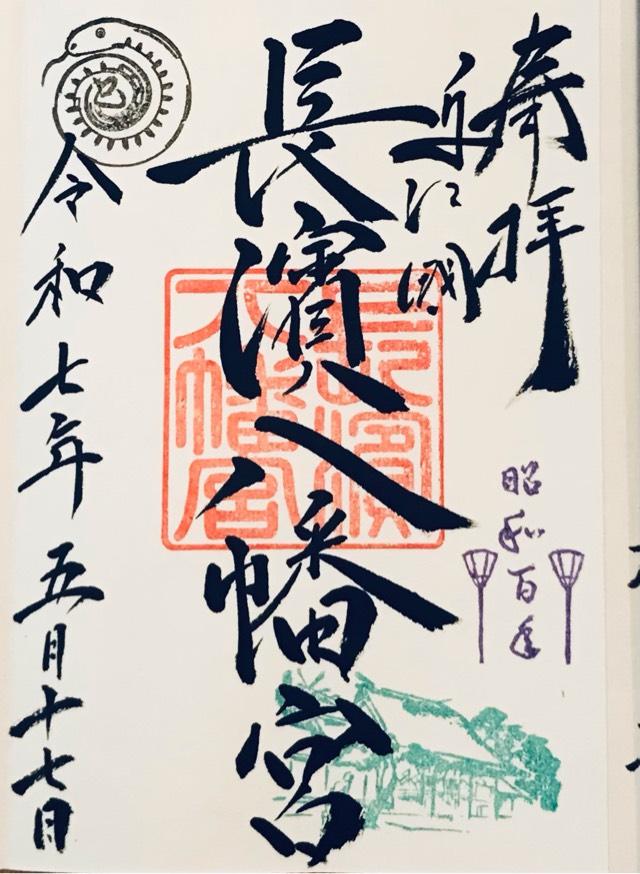 奉拝
近江國
長濱八幡宮
長濱八幡宮
昭和百年
巳
令和七年五月十七日